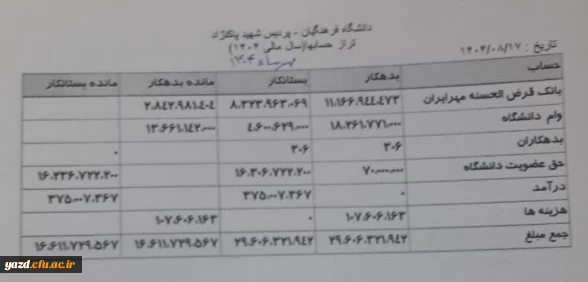 دانشگاه فرهنگیان - پردیس شهید پاکنژاد
تراز حسابها(سال مالی ۱۴۰۴)
مهرماه ۱۴۰۴
تاریخ : ۱۴۰۴/۰۸/۱۷
حساب بدهکار بستانکار مانده بدهکار مانده بستانکار
بانک قرض الحسنه مهرایران ۱۱,۱۶۶,۹۴۴,۴۷۳ ۸,۳۲۳,۹۶۳,۰۶۹ ۲,۸۴۲,۹۸۱,۴۰۴
وام دانشگاه ۱۸,۲۶۱,۷۷۱,۰۰۰ ۴,۶۰۰,۶۲۹,۰۰۰ ۱۳,۶۶۱,۱۴۲,۰۰۰
بدهکاران ۳۰۶ ۳۰۶ ۰
حق عضویت دانشگاه ۷۰,۰۰۰,۰۰۰ ۱۶,۳۰۶,۷۲۲,۲۰۰ ۱۶,۲۳۶,۷۲۲,۲۰۰
درآمد ۰ ۳۷۵,۰۰۷,۳۶۷ ۳۷۵,۰۰۷,۳۶۷
هزینه ها ۱۰۷,۶۰۶,۱۶۳ ۰ ۱۰۷,۶۰۶,۱۶۳
جمع مبلغ ۲۹,۶۰۶,۳۲۱,۹۴۲ ۲۹,۶۰۶,۳۲۱,۹۴۲ ۱۶,۶۱۱,۷۲۹,۵۶۷ ۱۶,۶۱۱,۷۲۹,۵۶۷
yazd.cfu.ac.ir